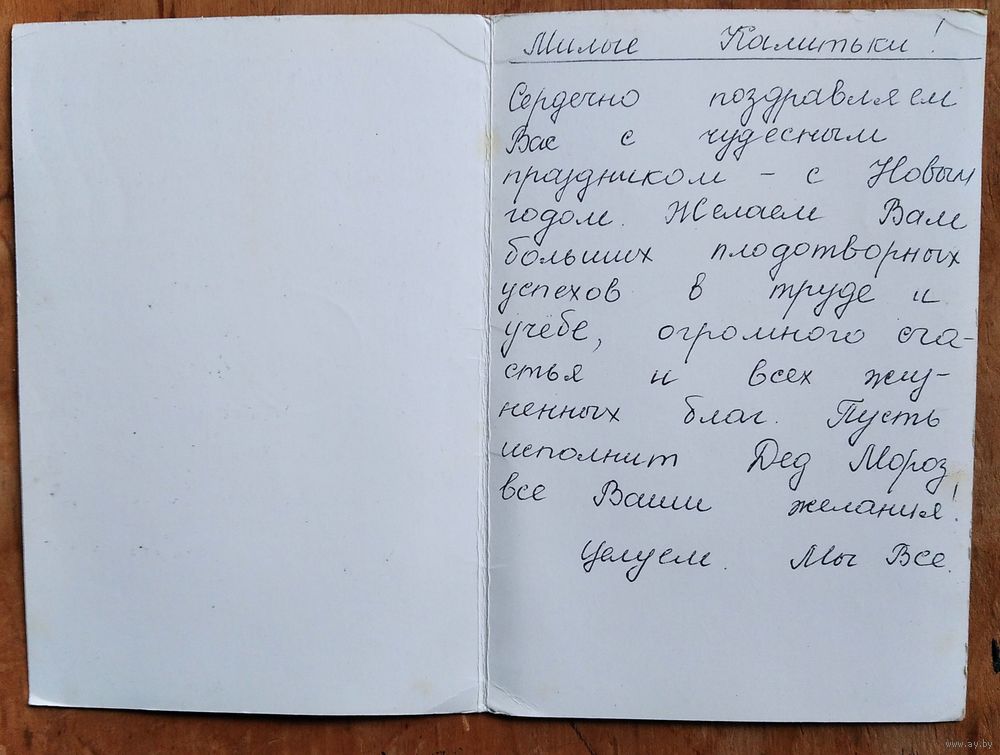 Милые Калитьки!
Сердечно поздравляем
Вас с чудесным
праздником - с Новым
годом. Желаем Вам
больших плодотворных
успехов в труде и
учёбе, огромного сча-
стья и всех жиз-
ненных благ. Пусть
исполнит Дед Мороз
все Ваши желания!
Целуем. Мы Все.
www.ay.by